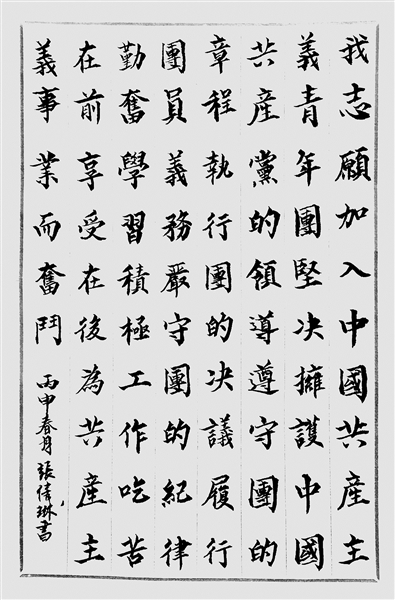 我志願加入中國共產主
義青年團堅决擁護中國
共產黨的領導遵守團的
章程執行團的决議履行
團員義務嚴守團的紀律
勤奮學習積極工作吃苦
在前享受在後為共產主
義事業而奮鬥
丙申春月張倩琳書